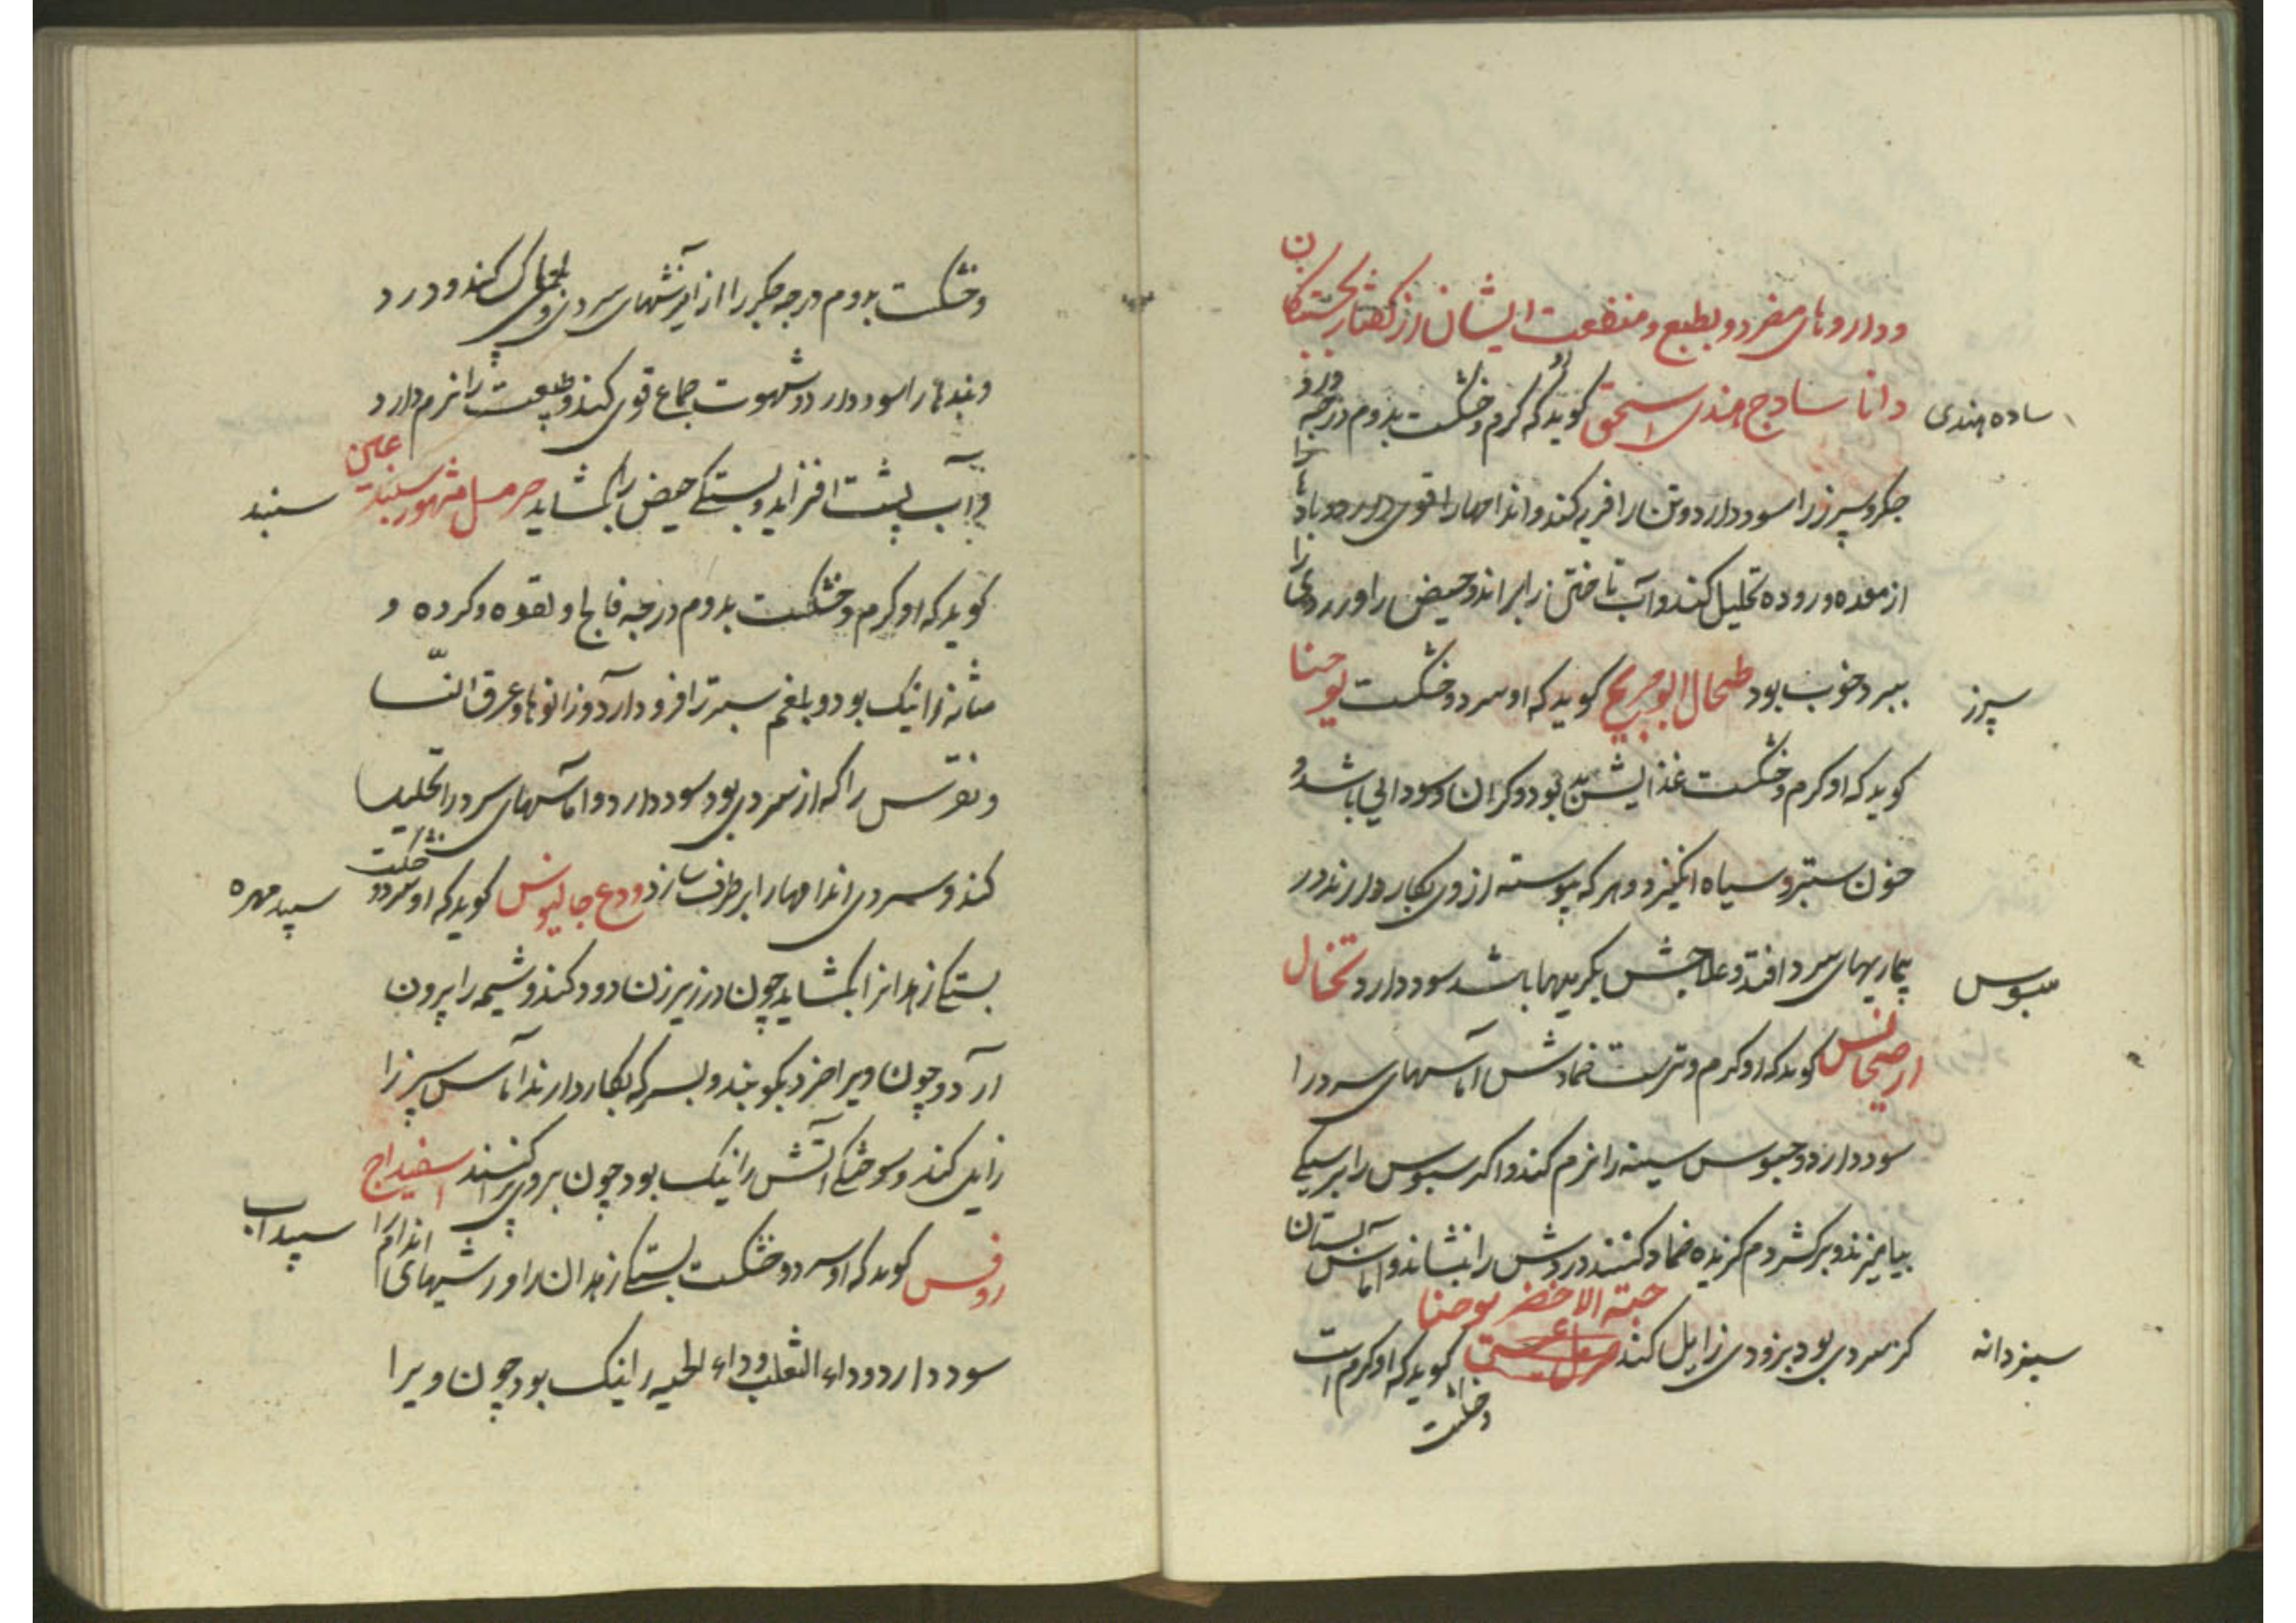 ن
و داروهای مفرد و بطبع و منفعت ایشان از کفتار نخستکا
دانا سادج هندی اسحق کوید که او کرم و خشکست بدوم درجه ورم
ساده هندی
جکر و سپرز را سود دارد و تن را فربه کند و اندامها را قوی دارد و باد را
از معده و روده تحلیل کند و آب تاختن را براند و حیض را و درد
ببرد خوب بود طحال ابو جریج کوید که او سرد و خشکست یوحنا
سپرز
کوید که او کرم و خشکست غذایش بد بود و کران و سودایی باشد و
خون ستبر و سیاه انکیزد و هر که پیوسته از وی بکار دارند در
بیماریهای سرد افتد و علاجش بکرمیها باشد سود دارد نخال
سبوس
ارجانس کوید که او کرم و ترست ضمادش آماسهای سرد را
سود دارد و سبوس سینه را نرم کند و اکر سبوس را بر سیکی
بیامیزند و بر کژدم کزیده ضماد کنند دردش را بنشاند و آماس پستان
حبة الاخضر یوحنا
کز سردی بود بزودی زایل کند کوید که او کرم است
سبزدانه
و خشکست
و خشکست بدوم درجه جکر را از آمیزشهای سرد پاک کند و درد
و بندها را سود دارد و شهوت جماع قوی کند و طبیعت را نرم دارد
و آب پشت افزاید و بستکی حیض را بکشاید حرمل مشهور سپند عین
سپند
کوید که او کرم و خشکست بدوم درجه فالج و لقوه و کرده و
مثانه را نیک بود و بلغم ستبر را فرود آرد و زانوها و عرق النسا
و نقرس را که از سردی بود سود دارد و آماسهای سرد را تحلیل
کند و سردی اندامها را برطرف سازد ودع جالینوس کوید که او سرد و خشکست
سپید مهره
بستکی زهدان را بکشاید چون در زیر زن دود کند و مشیمه را بیرون
آرد و چون ویرا خرد بکوبند و بسرکه بکار دارند آماس سپرز را
زایل کند و سوختکی آتش را نیک بود چون بر وی پراکنند اسفیداج
سپیداب
روفس کوید که او سرد و خشکست بستکی زهدان را و ریشهای اندام را
سود دارد و داء الثعلب و داء الحیه را نیک بود چون ویرا